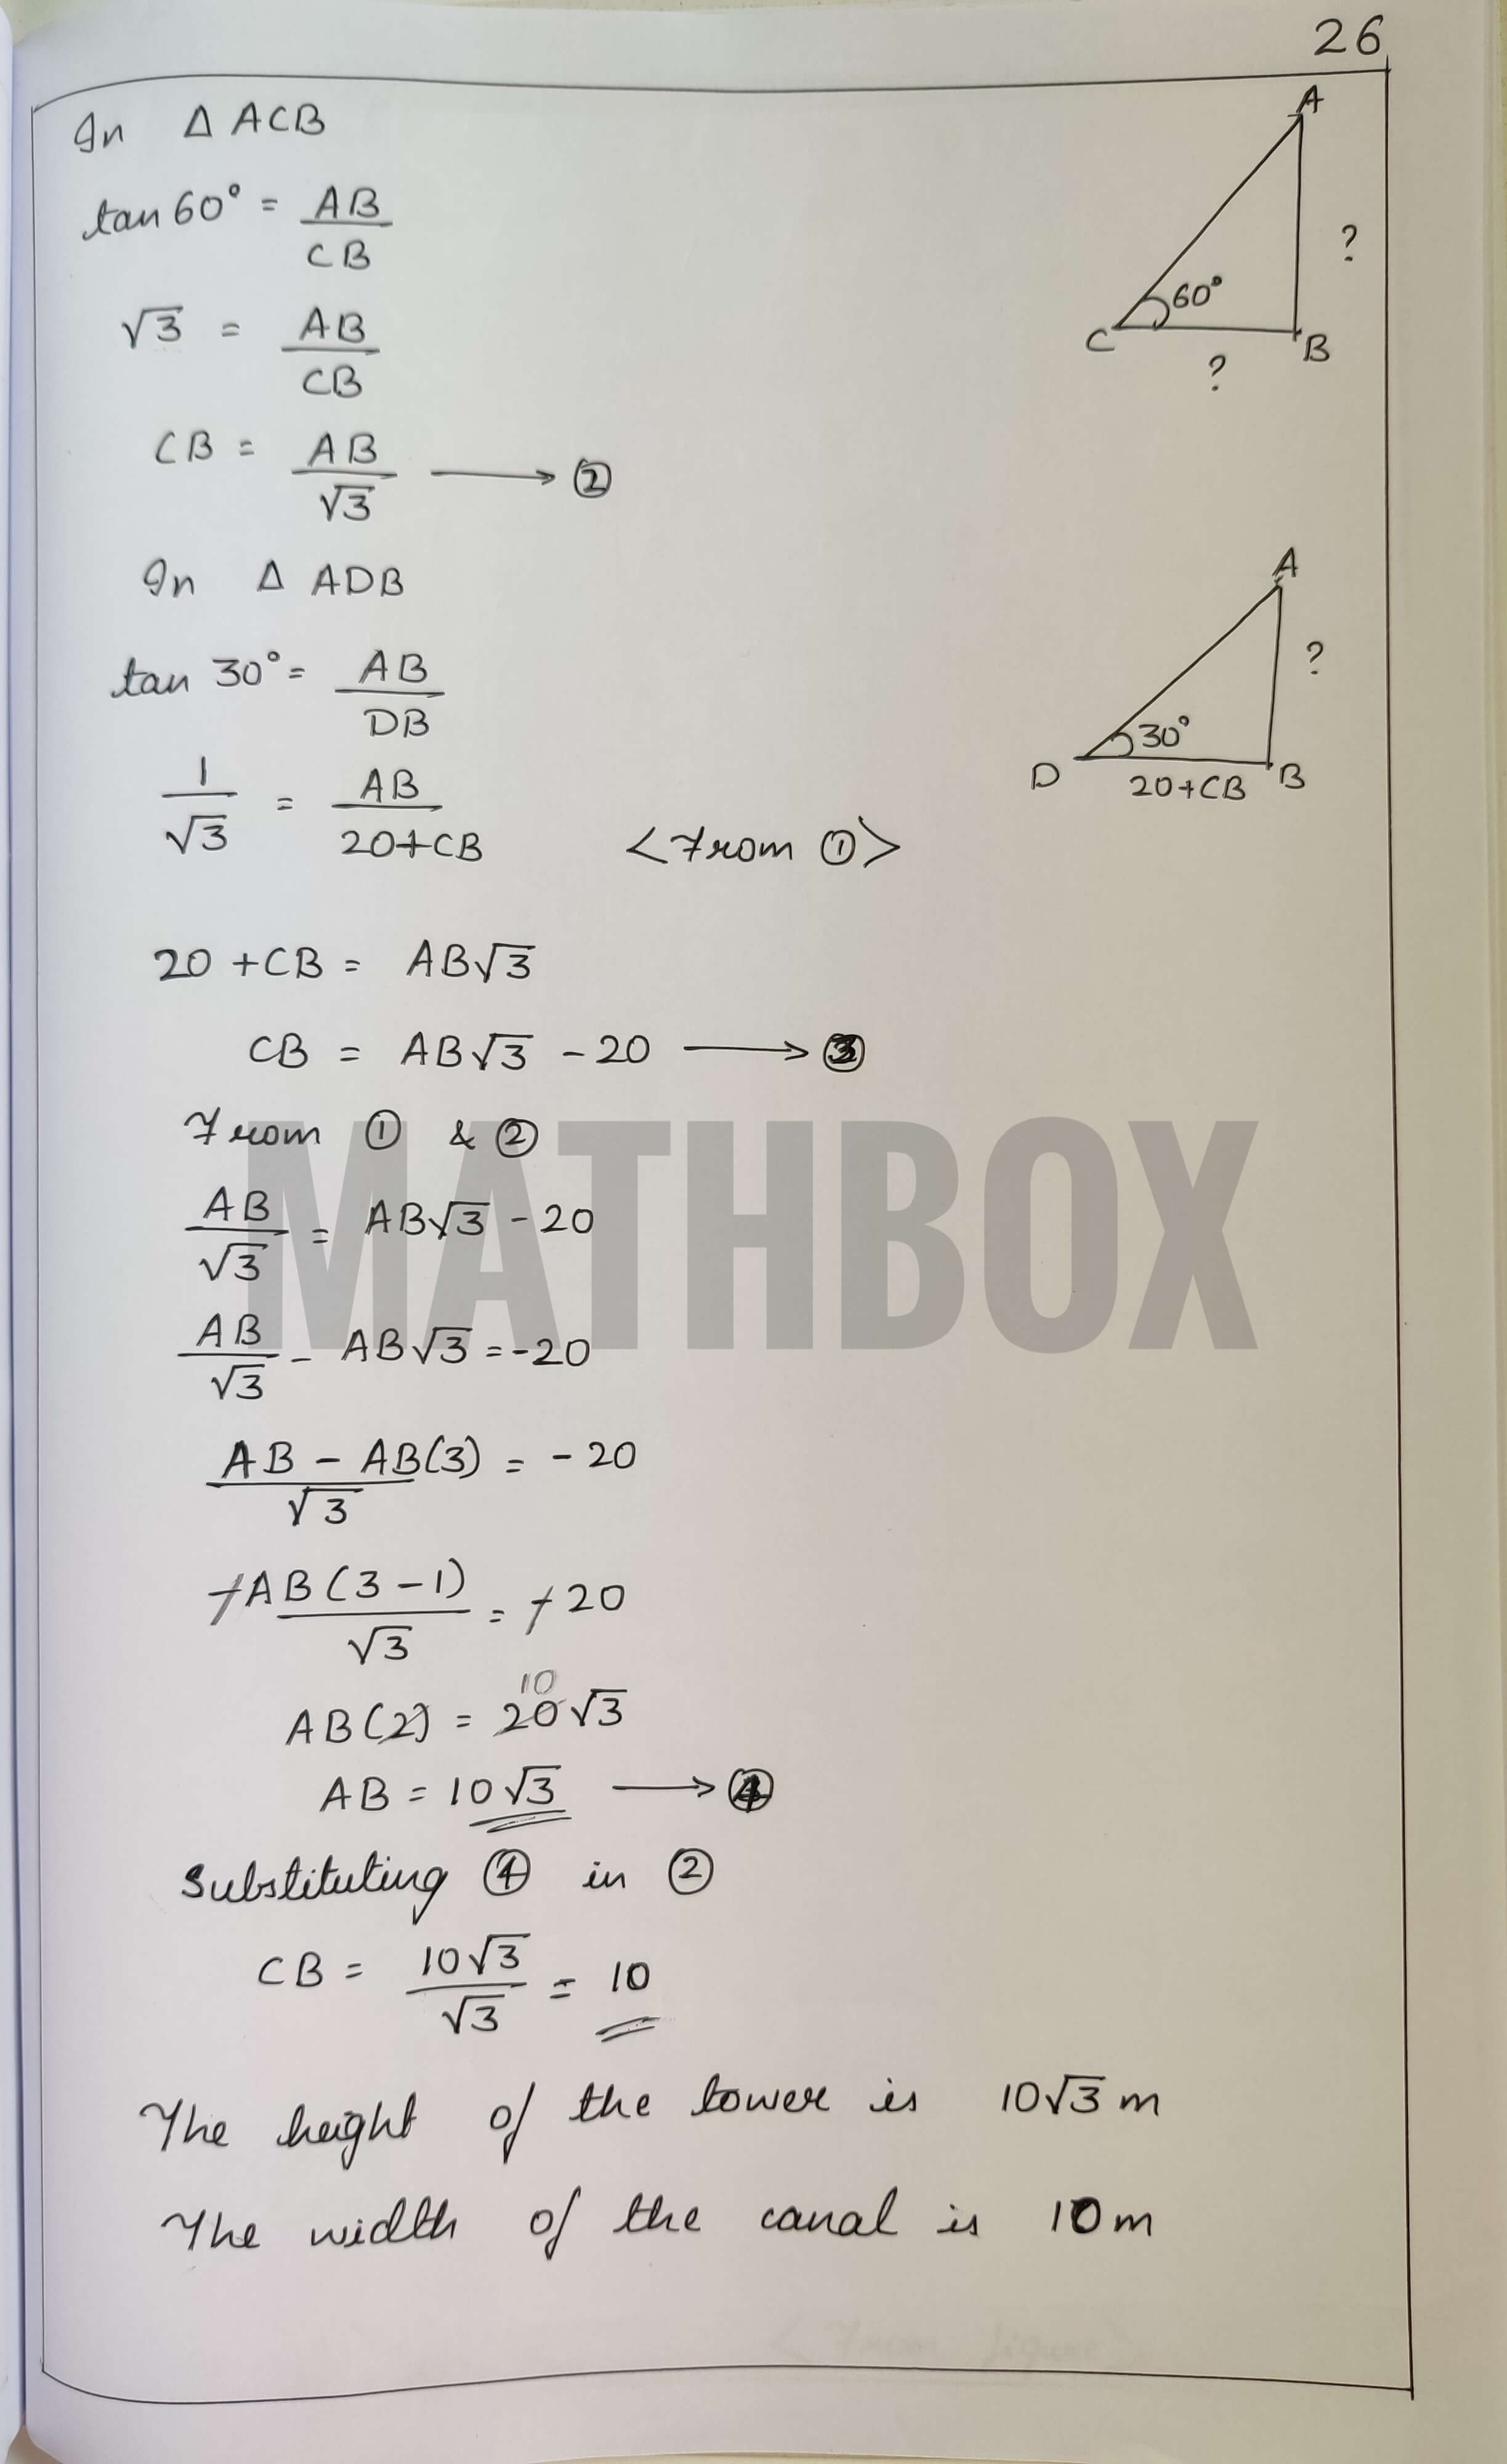 26
In Δ ACB
tan 60° = AB/CB
√3 = AB/CB
CB = AB/√3 ⟶ ②
A
?
60°
C
B
?
In Δ ADB
tan 30° = AB/DB
1/√3 = AB/20+CB <From ①>
A
?
30°
D
B
20+CB
20 + CB = AB√3
CB = AB√3 - 20 ⟶ ③
From ① & ②
AB/√3 = AB√3 - 20
AB/√3 - AB√3 = -20
AB - AB(3)/√3 = - 20
-AB(3-1)/√3 = -20
10
AB(2) = 20√3
AB = 10√3 ⟶ ④
Substituting ④ in ②
CB = 10√3/√3 = 10
The height of the tower is 10√3 m
The width of the canal is 10 m
MATHBOX